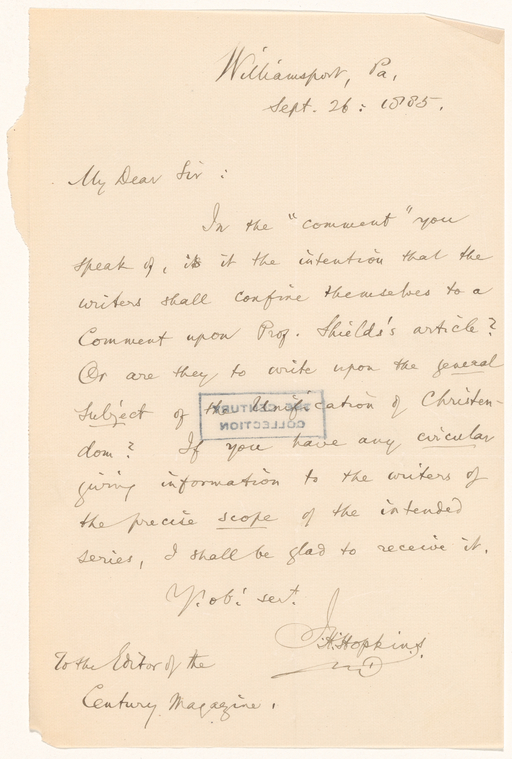 Williamsport, Pa,
Sept. 26: 1885.
My Dear Sir :
In the "comment" you
speak of, is it the intention that the
writers shall confine themselves to a
Comment upon Prof. Shields's article?
Or are they to write upon the general
subject of the Unification of Christen-
dom? If you have any circular
giving information to the writers of
the precise scope of the intended
series, I shall be glad to receive it.
Y. ob: sert.
J.H. Hopkins.
To the Editor of the
Century Magazine.
THE CENTURY
COLLECTION